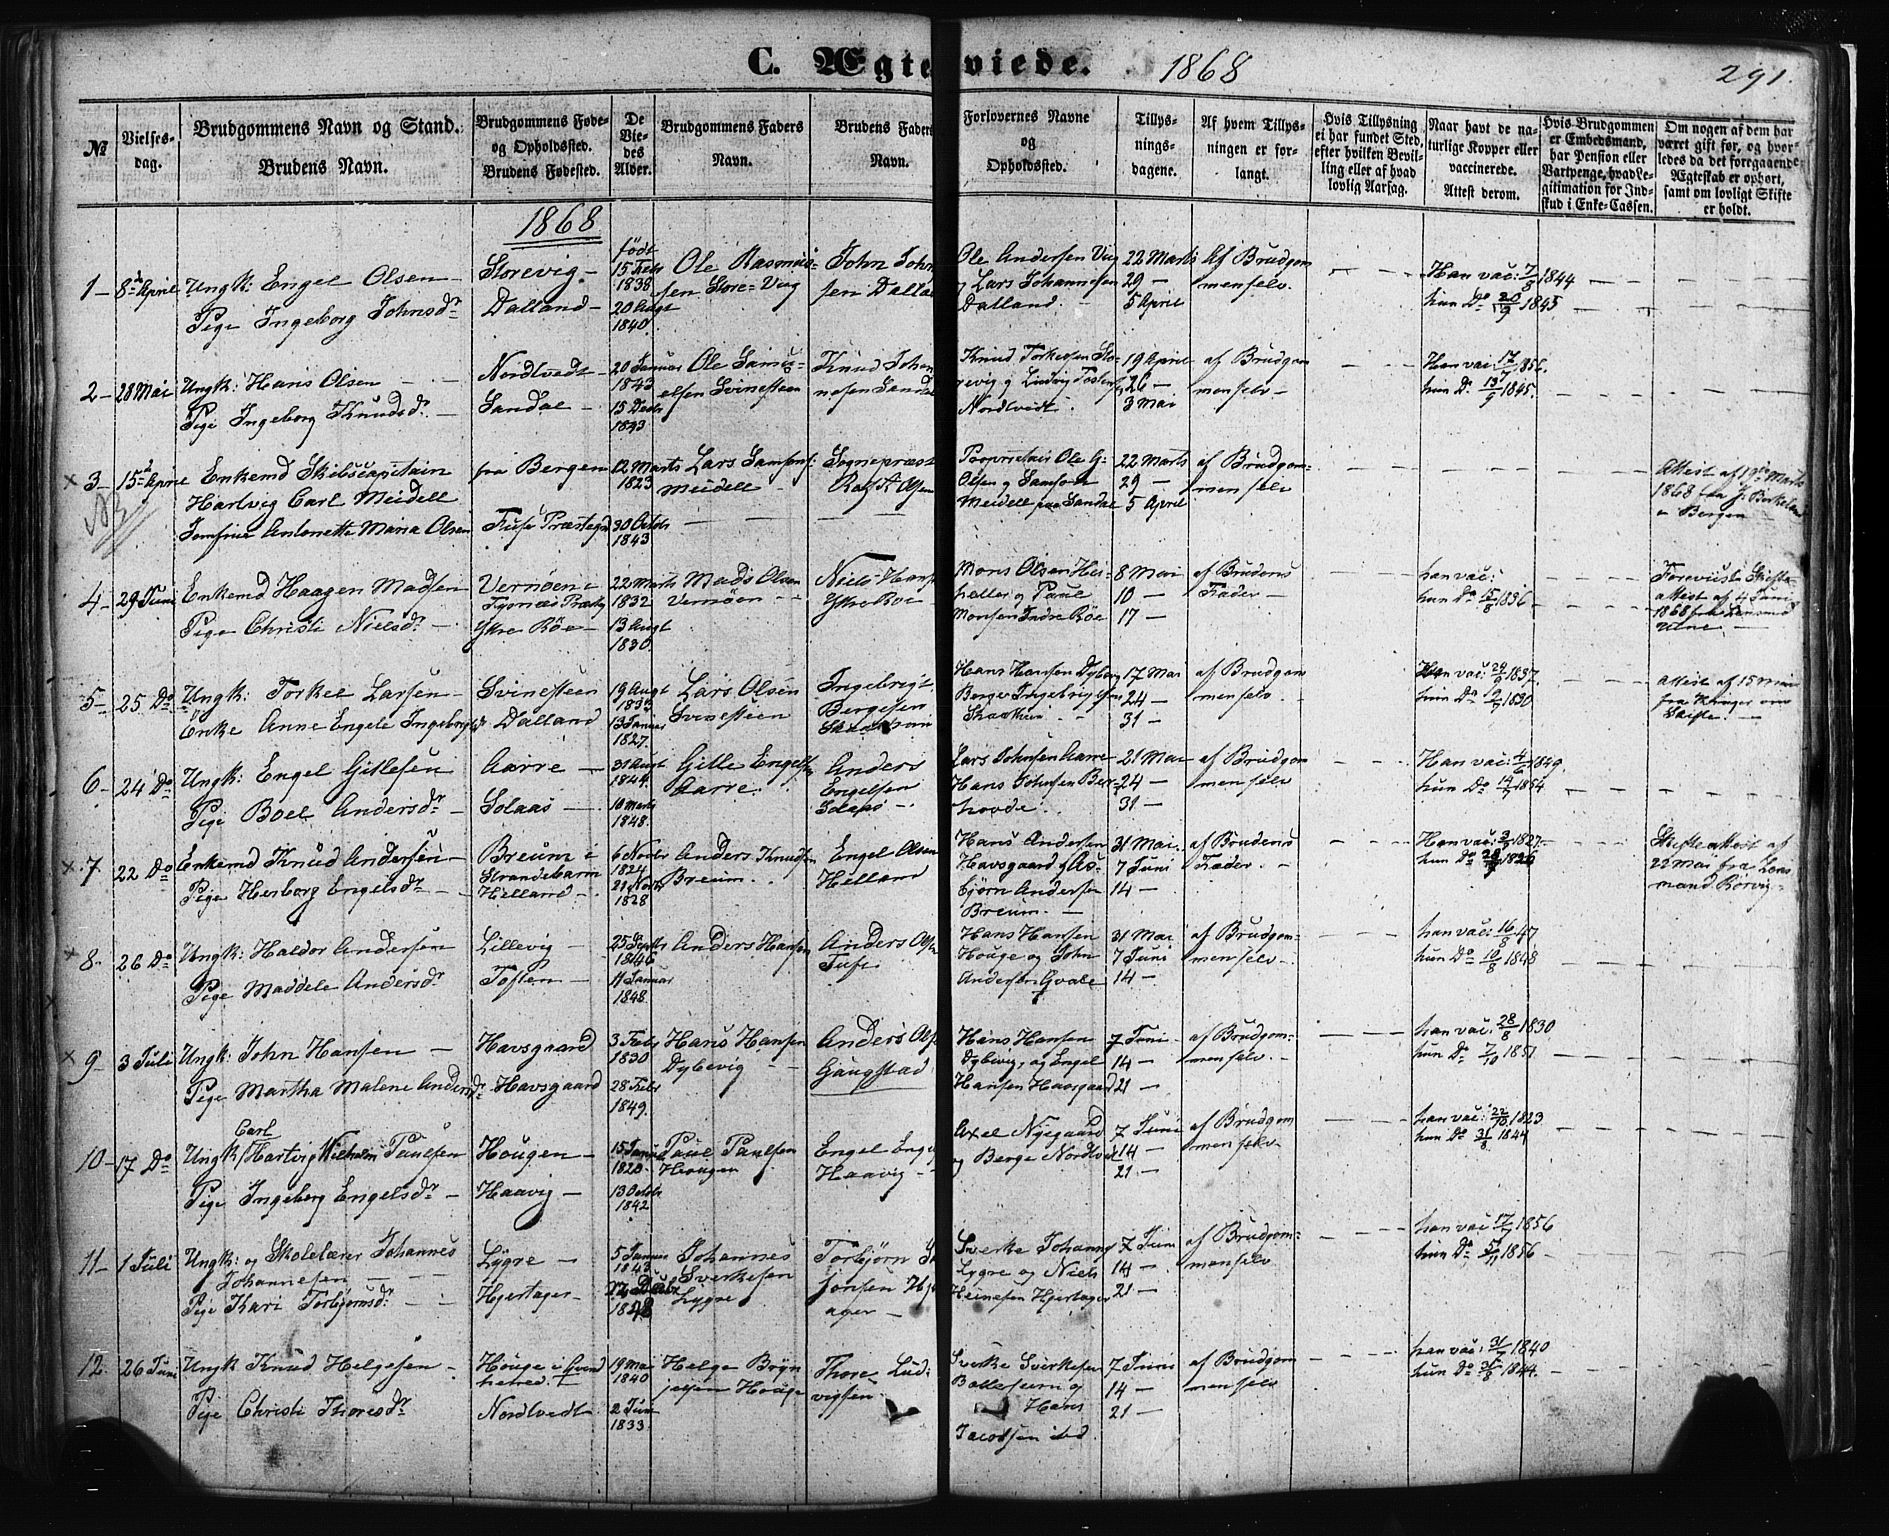 C. Ægteviede. 1868
291.
№
Vielses-
dag.
Brudgommens Navn og Stand.
Brudens Navn.
Brudgommens Føde-
og Opholdssted.
Brudens Fødested.
De
Vie-
des
Alder.
Brudgommens Faders
Navn.
Brudens Faders
Navn.
Forlovernes Navne
og
Opholdssted.
Tillys-
nings-
dagene.
Af hvem Tillys-
ningen er for-
langt.
Hvis Tillysning
ei har fundet Sted,
efter hvilken Bevil-
ling eller af hvad
lovlig Aarsag.
Naar havt de na-
turlige Kopper eller
vaccinerede.
Attest derom.
Hvis Brudgommen
er Embedsmand,
har Pension eller
Vartpenge, hvad Le-
gitimation for Ind-
skud i Enke-Cassen.
Om nogen af dem har
været gift før, og hvor-
ledes da det foregaaende
Ægteskab er ophørt,
samt om lovligt Skifte
er holdt.
1868
1 – 8de April
Ungk: Engel Olsen –
Pige Ingeborg Johnsdr
Storevig –
Dalland –
født
15 Febr
1838
20 Augt
1840
Ole Rasmus-
sen Store-Vaag
John John
sen Dalla
Ole Andersen Vaag
og Lars Johannesen
Dalland. –
22 Marts
29 –
5 April
Af Brudgom
men selv.
Han vac: 7/8 1844
hun Do 20/9 1845
2 – 28 Mai
Ungk: Hans Olsen
Pige Ingeborg Knudsdr –
Nordtvedt –
Sandal –
20 Januar
1843
15 Decbr
1843
Ole Samu-
elsen Svinesteen
Knud Johan
nesen Sanda
Knud Torkelsen Sto-
revig og Ludvig Tosten
Nordtvedt.
19 April
26 –
3 Mai
af Brudgom
men selv –
Han vac: 17/7 1856.
hun Do 13/9 1845.
× 3 – 15de April
Enkemd Skibscapitain
Hartvig Carl Meidell
Jomfrue Antonette Maria Olsen
fra Bergen
Fuse Præsteg
12 Marts
1823
30 Octobr
1843
Lars Samson
Meidell –
Sognepræst
Proprietair Ole G.
Olsen og Samson
Meidell paa Sandal
22 Marts
29 –
5 April
af Brudgom-
men selv
Attest af 19de Marts
1868 fra J. Birkeland
i Bergen
4 – 29 Juni
Enkemd Haagen Madsen
Pige Christi Nielsdr –
Vernøen i
Tysnæs Præsteg
Ytre Røe –
22 Marts
1832
13 Augt
1830
Mads Olsen
Vernøen –
Niels Hans
Ytre Røe
Mons Olsen Hel-
leller og Paul
Monsen Indre Røe
8 Mai
10 –
17 –
af Brudens
Fader –
han vac:
hun Do 15/8 1836
Foreviist Skifte
attest af 4 Juni
1868 fra Lensmd
5 – 25 Do
Ungk: Torkel Larsen –
Enke Anne Engele Ingebrigtsdr
Svinesteen
Dalland
19 Augt
1833
13 Januar
1827.
Lars Olsen
Svinesteen
Ingebrigt
Bergesen
Hans Hansen Dybvig
Berge Ingebrigtsen
17 Mai
24 –
31 –
af Brudgom
men selv.
Han vac: 29/9 1837.
hun Do 19/9 1830
Attest af 15 Mai
fra Krüger om
Skifte. –
6 – 24 Do
Ungk: Engel Gitlesen
Pige Boel Andersdr
Aarre –
Solaas –
31 Augt
1844.
10 Marts
1848.
Gitle Engelsen
Aarre.
Anders
Engelsen
Solaas –
Lars Johnsen Aarre
Hans Johnsen Ber-
hovde.
21 Mai
24 –
31 –
af Brudgom
men selv.
Han vac: 4/6 1849.
hun Do 14/7 1854
× 7 – 22 Do
Enkemd Knud Andersen –
Pige Herborg Engelsdr –
Breum i
Strandebarm
Helland –
6 Novbr
1824
21 Novbr
1828
Anders Knudsen
Breum.
Engel Olsen
Helland
Hans Andersen
Havsgaard og As-
bjørn Andersen
Breum. –
31 Mai.
7 Juni
14 –
af Brudens
Fader. –
Han vac: 3/7 1827.
hun Do 1826
Skifteattest af
22 Mai fra Lens
mand Rørvig –
× 8 – 26 Do
Ungk: Haldor Andersen
Pige Maddele Andersdr
Lillevig –
Toften –
25 Septbr
1846
11 Januar
1848.
Anders Hansen
Anders Ols
Tufte
Hans Hansen
Houge og John
Andersen Gvale
31 Mai
7 Juni
14 –
af Brudgom-
men selv –
han vac: 16/8 47
hun Do 10/8 1848
× 9 – 3 Juli
Ungk: John Hansen –
Pige Martha Malene Andersdr
Havsgaard
Havsgaard
3 Febr
1830
28 Febr
1849.
Hans Hansen
Dybevig –
Anders Ols
Gangstad
Hans Hansen
Dybevig, og Engel
Hansen Havsgaard
7 Juni
14 –
21 –
af Brudgom-
men selv. –
han vac: 28/8 1830
hun Do 7/10 1851
10 – 17 Do
Carl
Ungk: Hartvig Wilhelm Paulsen
Pige Ingeborg Engelsdr –
Hougen –
Haavig –
15 Januar
1820.
13 Octobr
1842
Paul Paulsen
Hougen
Engel Eng
Haavig –
Axel Nygaard
og Berge Nordtved
7 Juni
14 –
21 –
af Brudgom
men selv.
han vac: 22/10 1823
hun Do 31/8 1844
11 – 1 Juli
Ungk: og Skolelærer Johannes
Johannesen – – –
Pige Kari Torbjørnsdr –
Lygre –
Hjertager –
5 Januar
1843
Johannes
Sverkesen
Lygre
Torbjørn
Sverke Johann
Lygre og Niels
Heinesen Hjertager
7 Juni
14 –
21 –
af Brudgom-
men selv
han vac: 17/7 1856
hun Do 1856
12. 26 Juni
Ungk Knud Helgesen –
Pige Christi Thoresdr
Houge i Qvind
herred –
Nordtvedt
19 Mai
1840
2 Juni
1833
Helge Bryn
jelsen Houge
Thore Lud-
vigsen
Sverke Sverkesen
Hans
Jacobsen ibd.
7 Juni
14 –
21 –
af Brudgom
men selv
han vac: 31/7 1840
hun Do 31/8 1844.